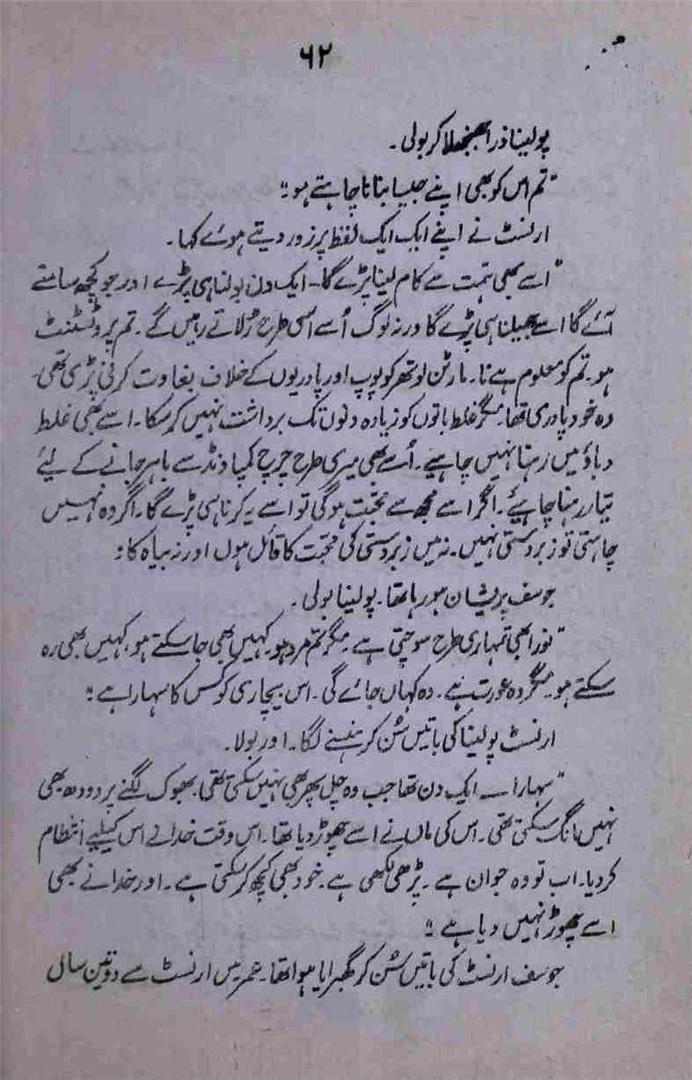 ۶۲
پولینا ذرا جھنجھلا کر بولی۔
"تم اس کو بھی اپنے جیسا بنانا چاہتے ہو؛"
ارنسٹ نے اپنے ایک ایک لفظ پر زور دیتے ہوئے کہا۔
"اسے بھی ہمت سے کام لینا پڑے گا۔ ایک دن بولنا ہی پڑے اور جو کچھ سامنے
آئے گا اسے جھیلنا ہی پڑے گا ورنہ لوگ اُسے اسی طرح رُلاتے رہیں گے۔ تم پروٹسٹنٹ
ہو۔ تم کو معلوم ہے نا۔ مارٹن لوتھر کو پوپ اور پادریوں کے خلاف بغاوت کرنی پڑی تھی۔
وہ خود پادری تھا۔ مگر غلط باتوں کو زیادہ دنوں تک برداشت نہیں کر سکا۔ اسے بھی غلط
دباؤ میں رہنا نہیں چاہیے۔ اُسے بھی میری طرح چرچ کمپاونڈ سے باہر جانے کے لیئے
تیار رہنا چاہیئے۔ اگر اسے مجھ سے محبت ہوگی تو اسے یہ کرنا ہی پڑے گا۔ اگر وہ نہیں
چاہتی تو زبردستی نہیں۔ نہ میں زبردستی کی محبت کا قائل ہوں اور نہ بیاہ کا؛
جوسف پریشان ہو رہا تھا۔ پولینا بولی۔
"نورا بھی تمہاری طرح سوچتی ہے۔ مگر تم مرد ہو۔ کہیں بھی جا سکتے ہو، کہیں بھی رہ
سکتے ہو۔ مگر وہ عورت ہے۔ وہ کہاں جائے گی۔ اس بیچاری کو کس کا سہارا ہے؛"
ارنسٹ پولینا کی باتیں سُن کر ہنسنے لگا۔ اور بولا۔
"سہارا۔۔ ایک دن تھا جب وہ چل پھر بھی نہیں سکتی تھی۔ بھوک لگنے پر دودھ بھی
نہیں مانگ سکتی تھی۔ اس کی ماں نے اسے چھوڑ دیا تھا۔ اس وقت خدا نے اس کیلیے انتظام
کر دیا۔ اب تو وہ جوان ہے۔ پڑھی لکھی ہے۔ خود بھی کچھ کر سکتی ہے۔ اور خدا نے بھی
اسے چھوڑ نہیں دیا ہے؛"
جوسف ارنسٹ کی باتیں سُن کر گھبرایا ہوا تھا۔ عمر میں ارنسٹ سے دو تین سال